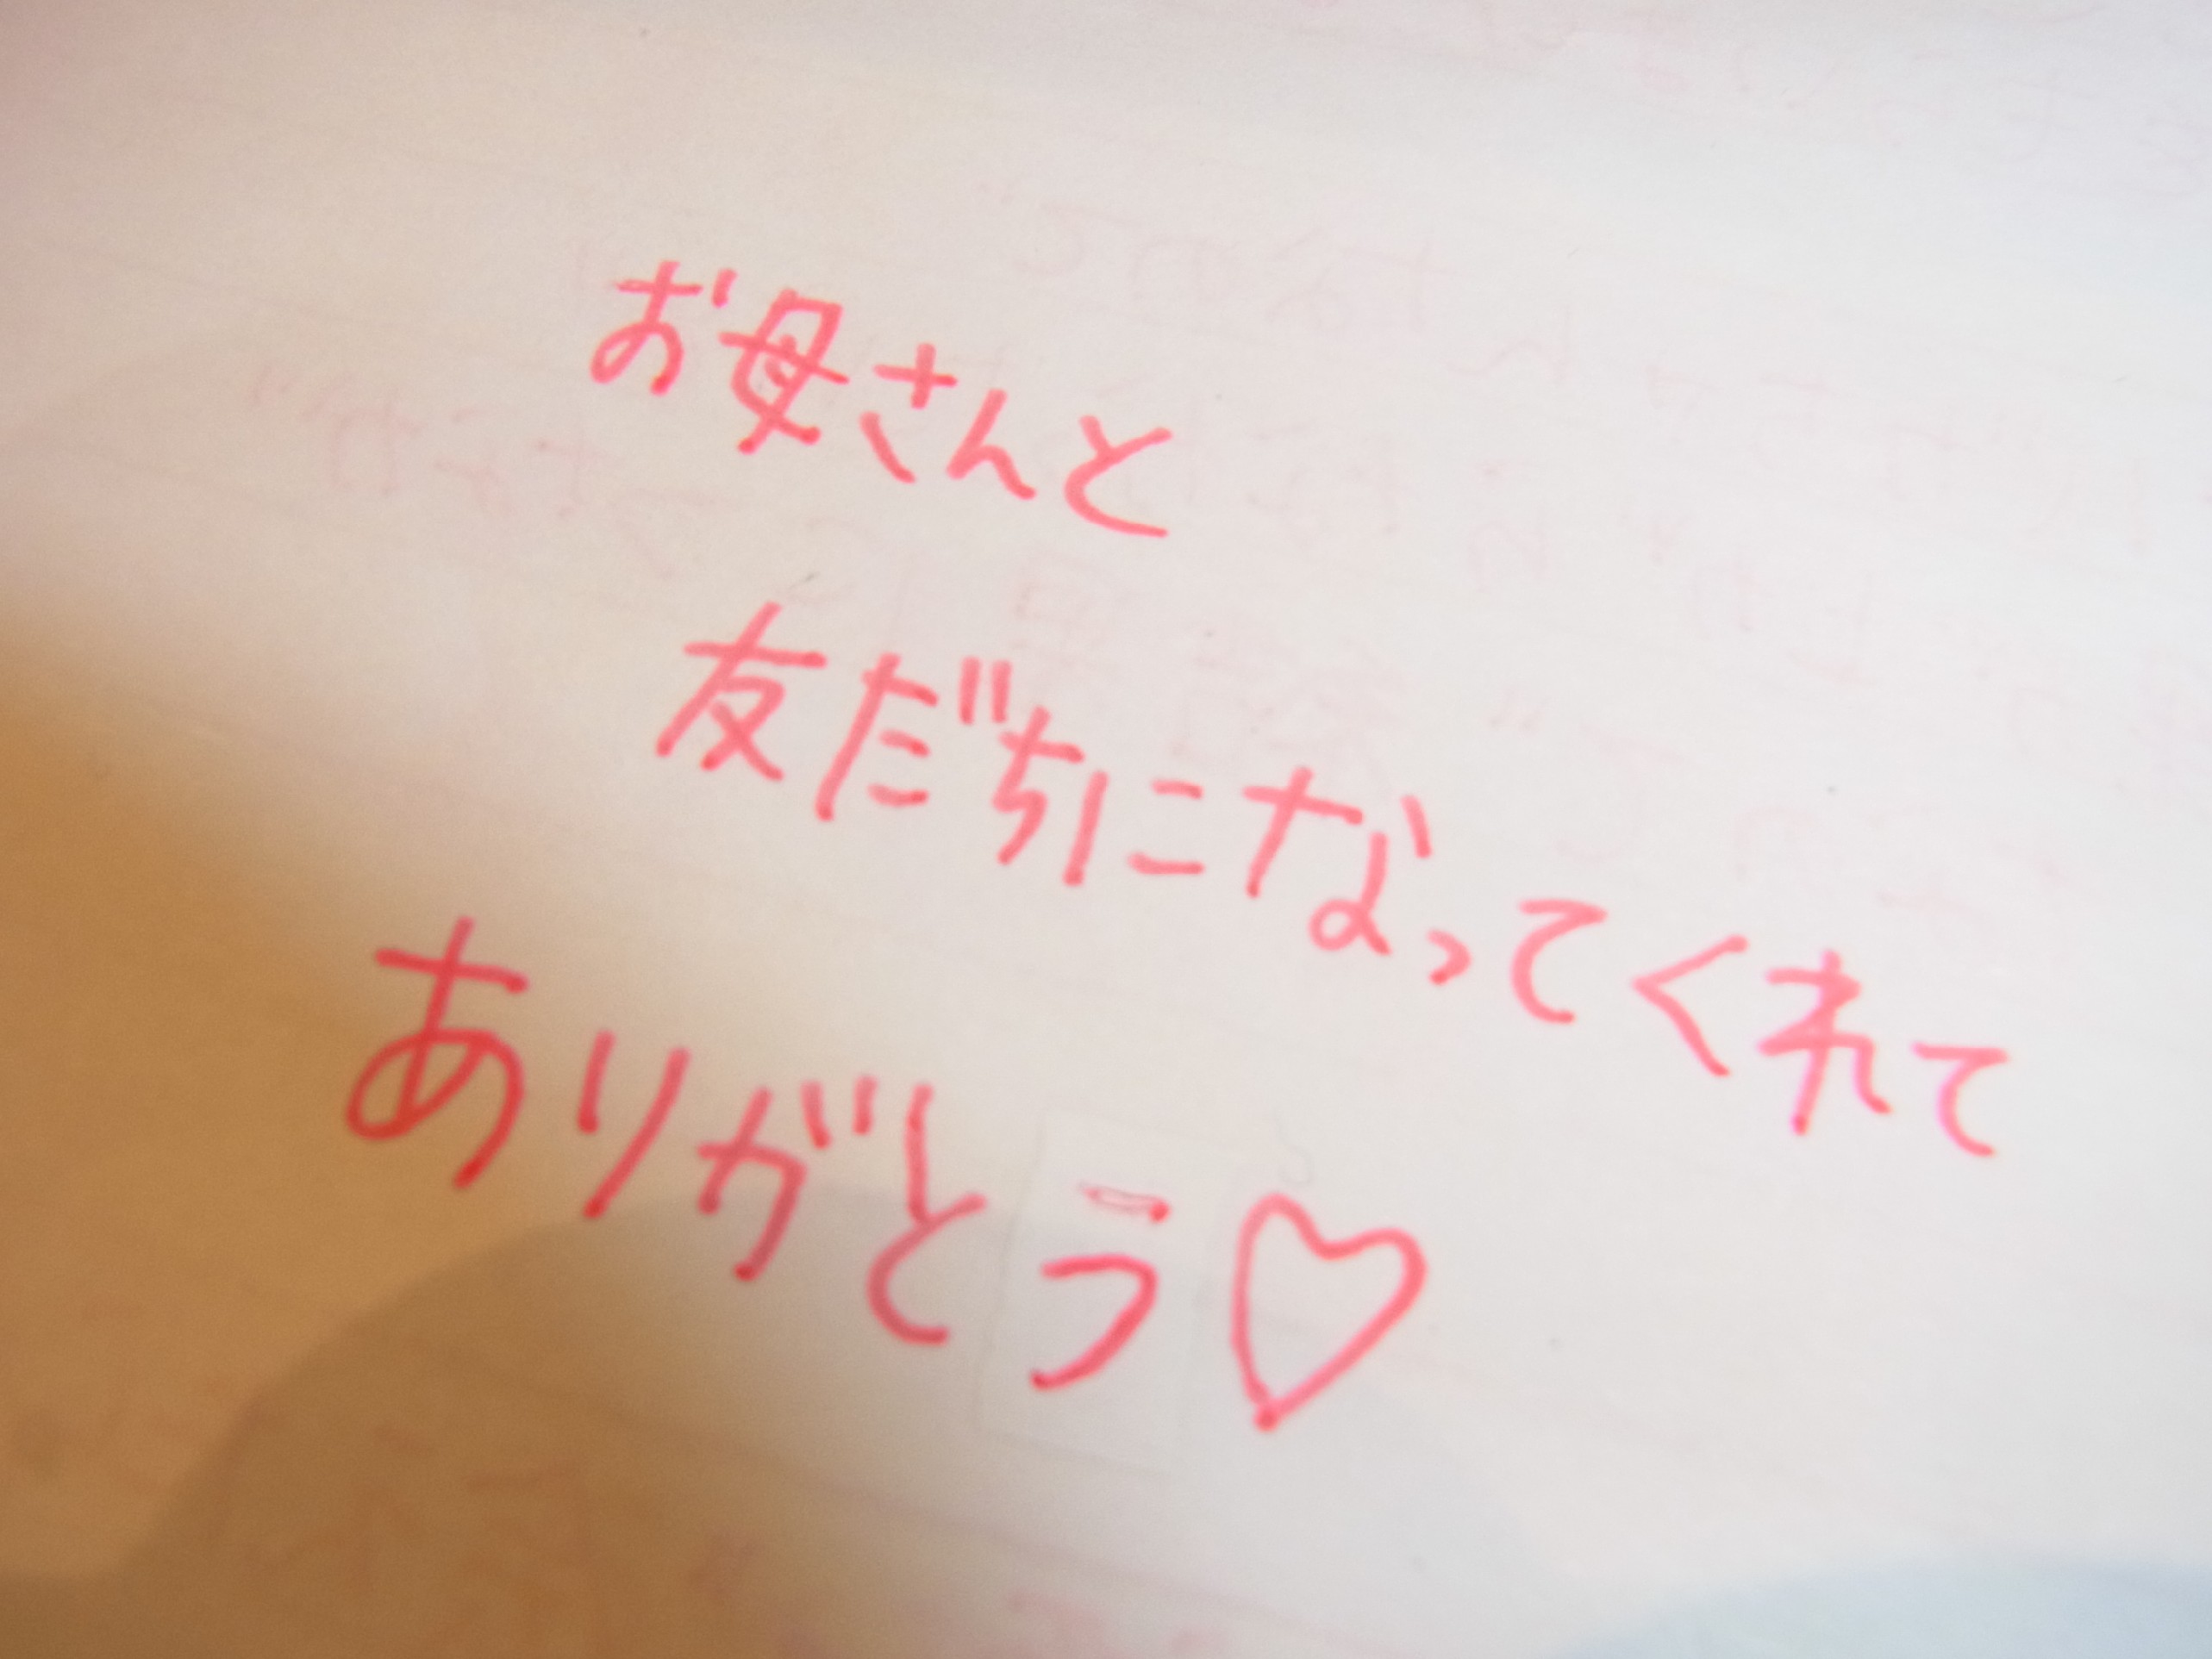 お母さんと
友だちになってくれて
ありがとう♡